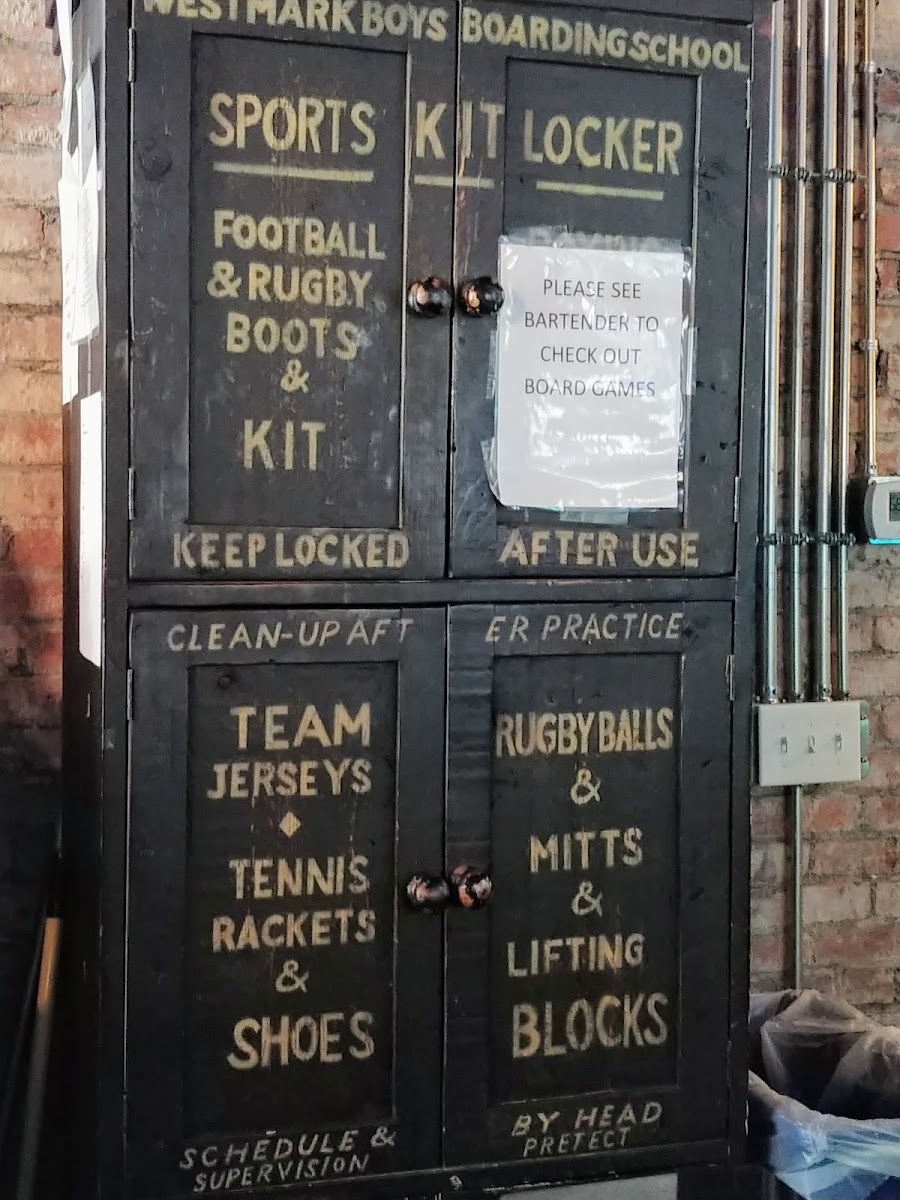 WESTMARK BOYS BOARDING SCHOOL
SPORTS KIT LOCKER
FOOTBALL
& RUGBY
BOOTS
&
KIT
PLEASE SEE
BARTENDER TO
CHECK OUT
BOARD GAMES
KEEP LOCKED AFTER USE
CLEAN-UP AFTER PRACTICE
TEAM
JERSEYS
TENNIS
RACKETS
&
SHOES
RUGBY BALLS
&
MITTS
&
LIFTING
BLOCKS
SCHEDULE &
SUPERVISION
BY HEAD
PRETECT